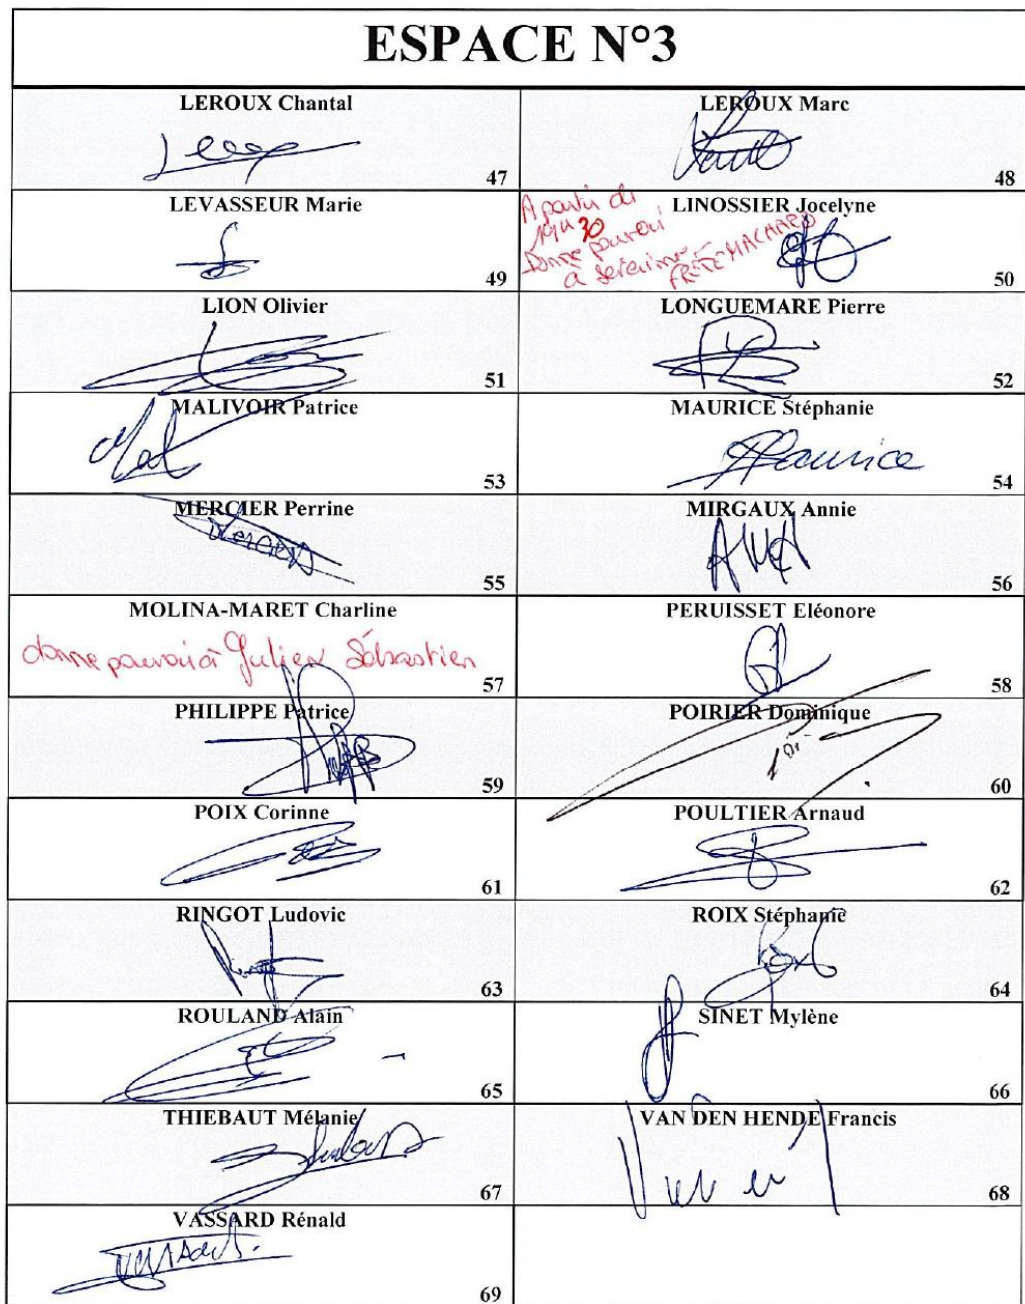 ESPACE N°3
LEROUX Chantal
47
LEROUX Marc
48
LEVASSEUR Marie
49
A partir de
30
Donne pouvoir
à
FRÉTÉ-MACHARD
LINOSSIER Jocelyne
50
LION Olivier
51
LONGUEMARE Pierre
52
MALIVOIR Patrice
53
MAURICE Stéphanie
Maurice
54
MERCIER Perrine
55
MIRGAUX Annie
56
MOLINA-MARET Charline
donne pouvoir à Julien Sébastien
57
PERUISSET Eléonore
58
PHILIPPE Patrice
59
POIRIER Dominique
60
POIX Corinne
61
POULTIER Arnaud
62
RINGOT Ludovic
63
ROIX Stéphanie
64
ROULAND Alain
65
SINET Mylène
66
THIEBAUT Mélanie
67
VAN DEN HENDE Francis
68
VASSARD Rénald
69